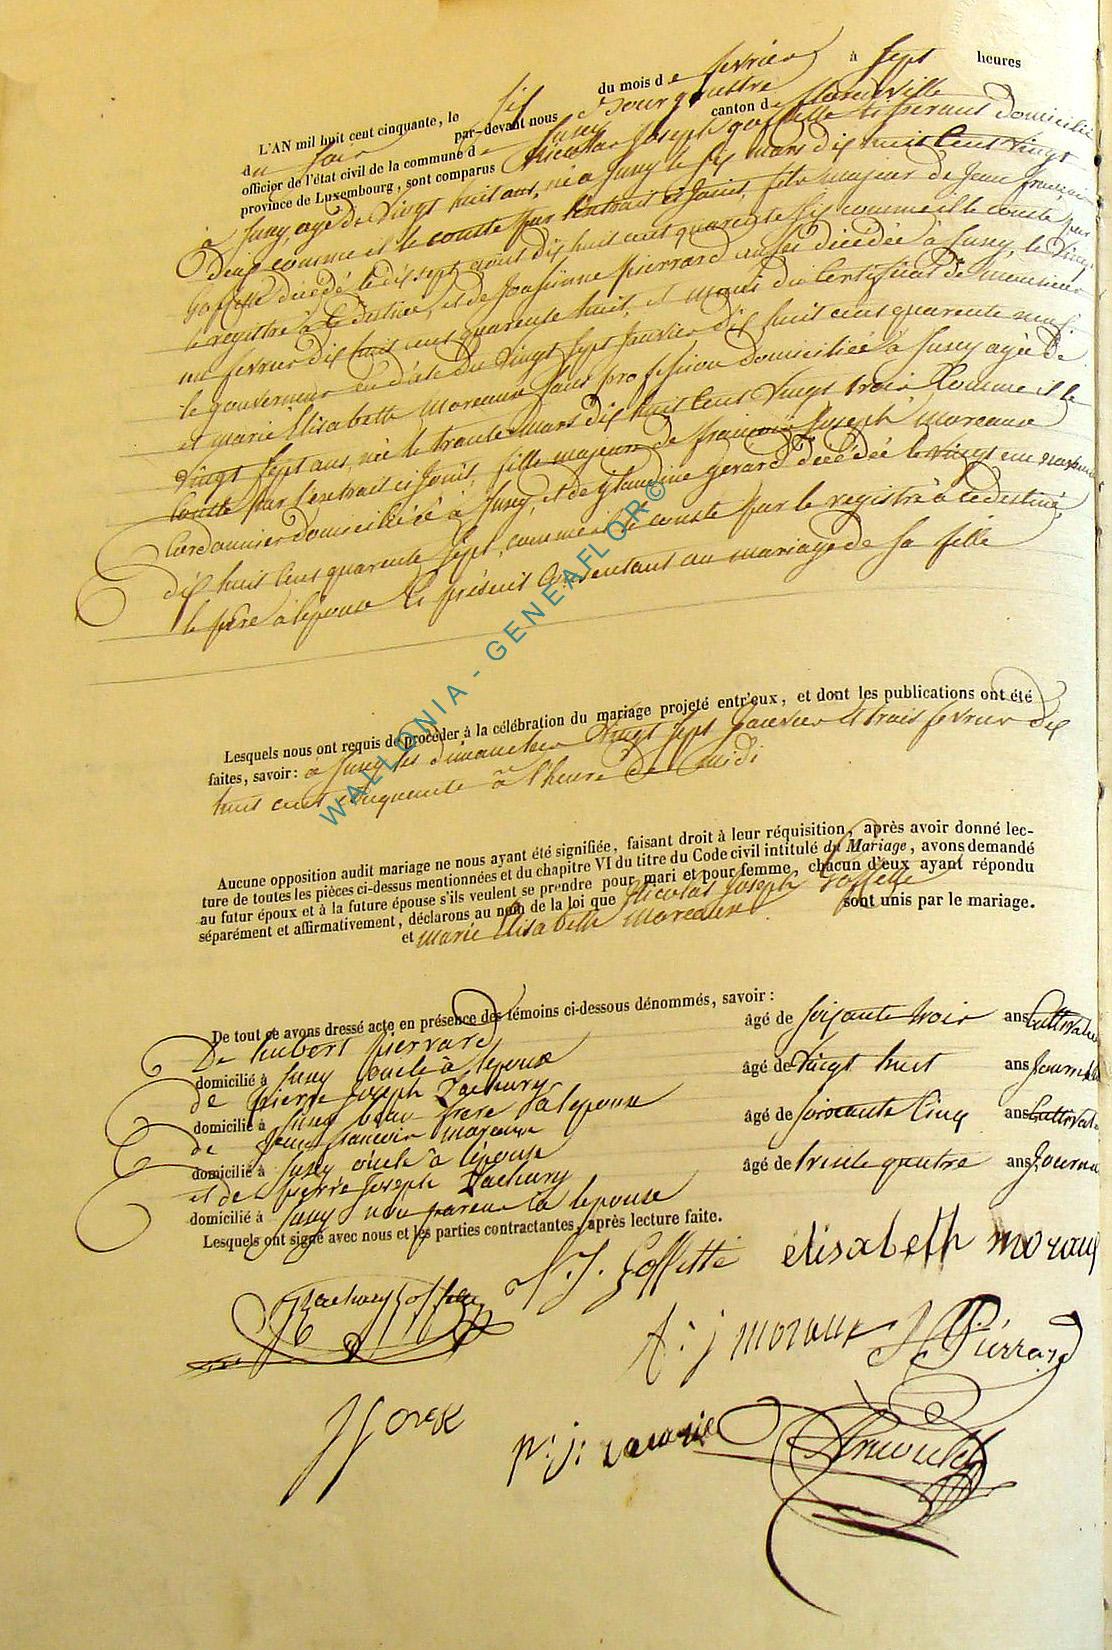 L'AN mil huit cent cinquante, le six du mois de fevrier à sept heures
du soir par-devant nous Bourgmestre
officier de l'état civil de la commune de Jusey canton de
province de Luxembourg, sont comparus Nicolas Joseph Goffette domicilié
à Jusey, agé de vingt huit ans, né à Jusey le six mars dix huit cent vingt
Deux comme il le conste par l'extrait ci Joint, fils majeur de Jean françois
Goffette décédé le dix sept août dix huit cent quarante six comme il le conste par
le registre à ce destiné, et de Pierrard aussi décédée à Jusey, le vingt
un fevrier dix huit cent quarante huit, et muni du Certificat de monsieur
le gouverneur en date du vingt sept Janvier dix huit cent quarante neuf.
et marie Elisabeth Moreaux sans profession domiciliée à Jusey agée de
vingt sept ans, née le trente mars dix huit cent vingt trois Comme il le
Conste par l'extrait ci Joint, fille majeure de francois Joseph Moreaux
Cordonnier domicilié à Jusey, et de gerard décédée le vingt un
dix huit cent quarante sept, comme il conste par le registre à ce destiné,
le père à lepouse ici présent Consentant au mariage de sa fille
Lesquels nous ont requis de procéder à la célébration du mariage projeté entr'eux, et dont les publications ont été
faites, savoir: à Jusey les dimanches vingt sept Janvier et trois fevrier dix
huit cent cinquante à l'heure de midi
Aucune opposition audit mariage ne nous ayant été signifiée, faisant droit à leur réquisition, après avoir donné lec-
ture de toutes les pièces ci-dessus mentionnées et du chapitre VI du titre du Code civil intitulé du Mariage, avons demandé
au futur époux et à la future épouse s'ils veulent se prendre pour mari et pour femme, chacun d'eux ayant répondu
séparément et affirmativement, déclarons au nom de la loi que Nicolas Joseph Goffette
et marie Elisabeth Moreaux sont unis par le mariage.
De tout ce avons dressé acte en présence des témoins ci-dessous dénommés, savoir:
De hubert Pierrard âgé de soixante trois ans Cultivateur
domicilié à Jusey oncle à lepoux
de pierre Joseph Zachary âgé de vingt huit ans Journalier
domicilié à Jusey beau frere à lepouse
de Jean francois moreaux âgé de soixante cinq ans Cultivateur
domicilié à Jusey oncle à l'épouse
et de pierre Joseph Zachary âgé de trente quatre ans Journalier
domicilié à Jusey non parent à lepouse
Lesquels ont signé avec nous et les parties contractantes, après lecture faite.
N. J. Goffette elisabeth moraux
Zachary
f. j moraux H Pierrard
p. j.
WALLONIA - GENEAFLOR©